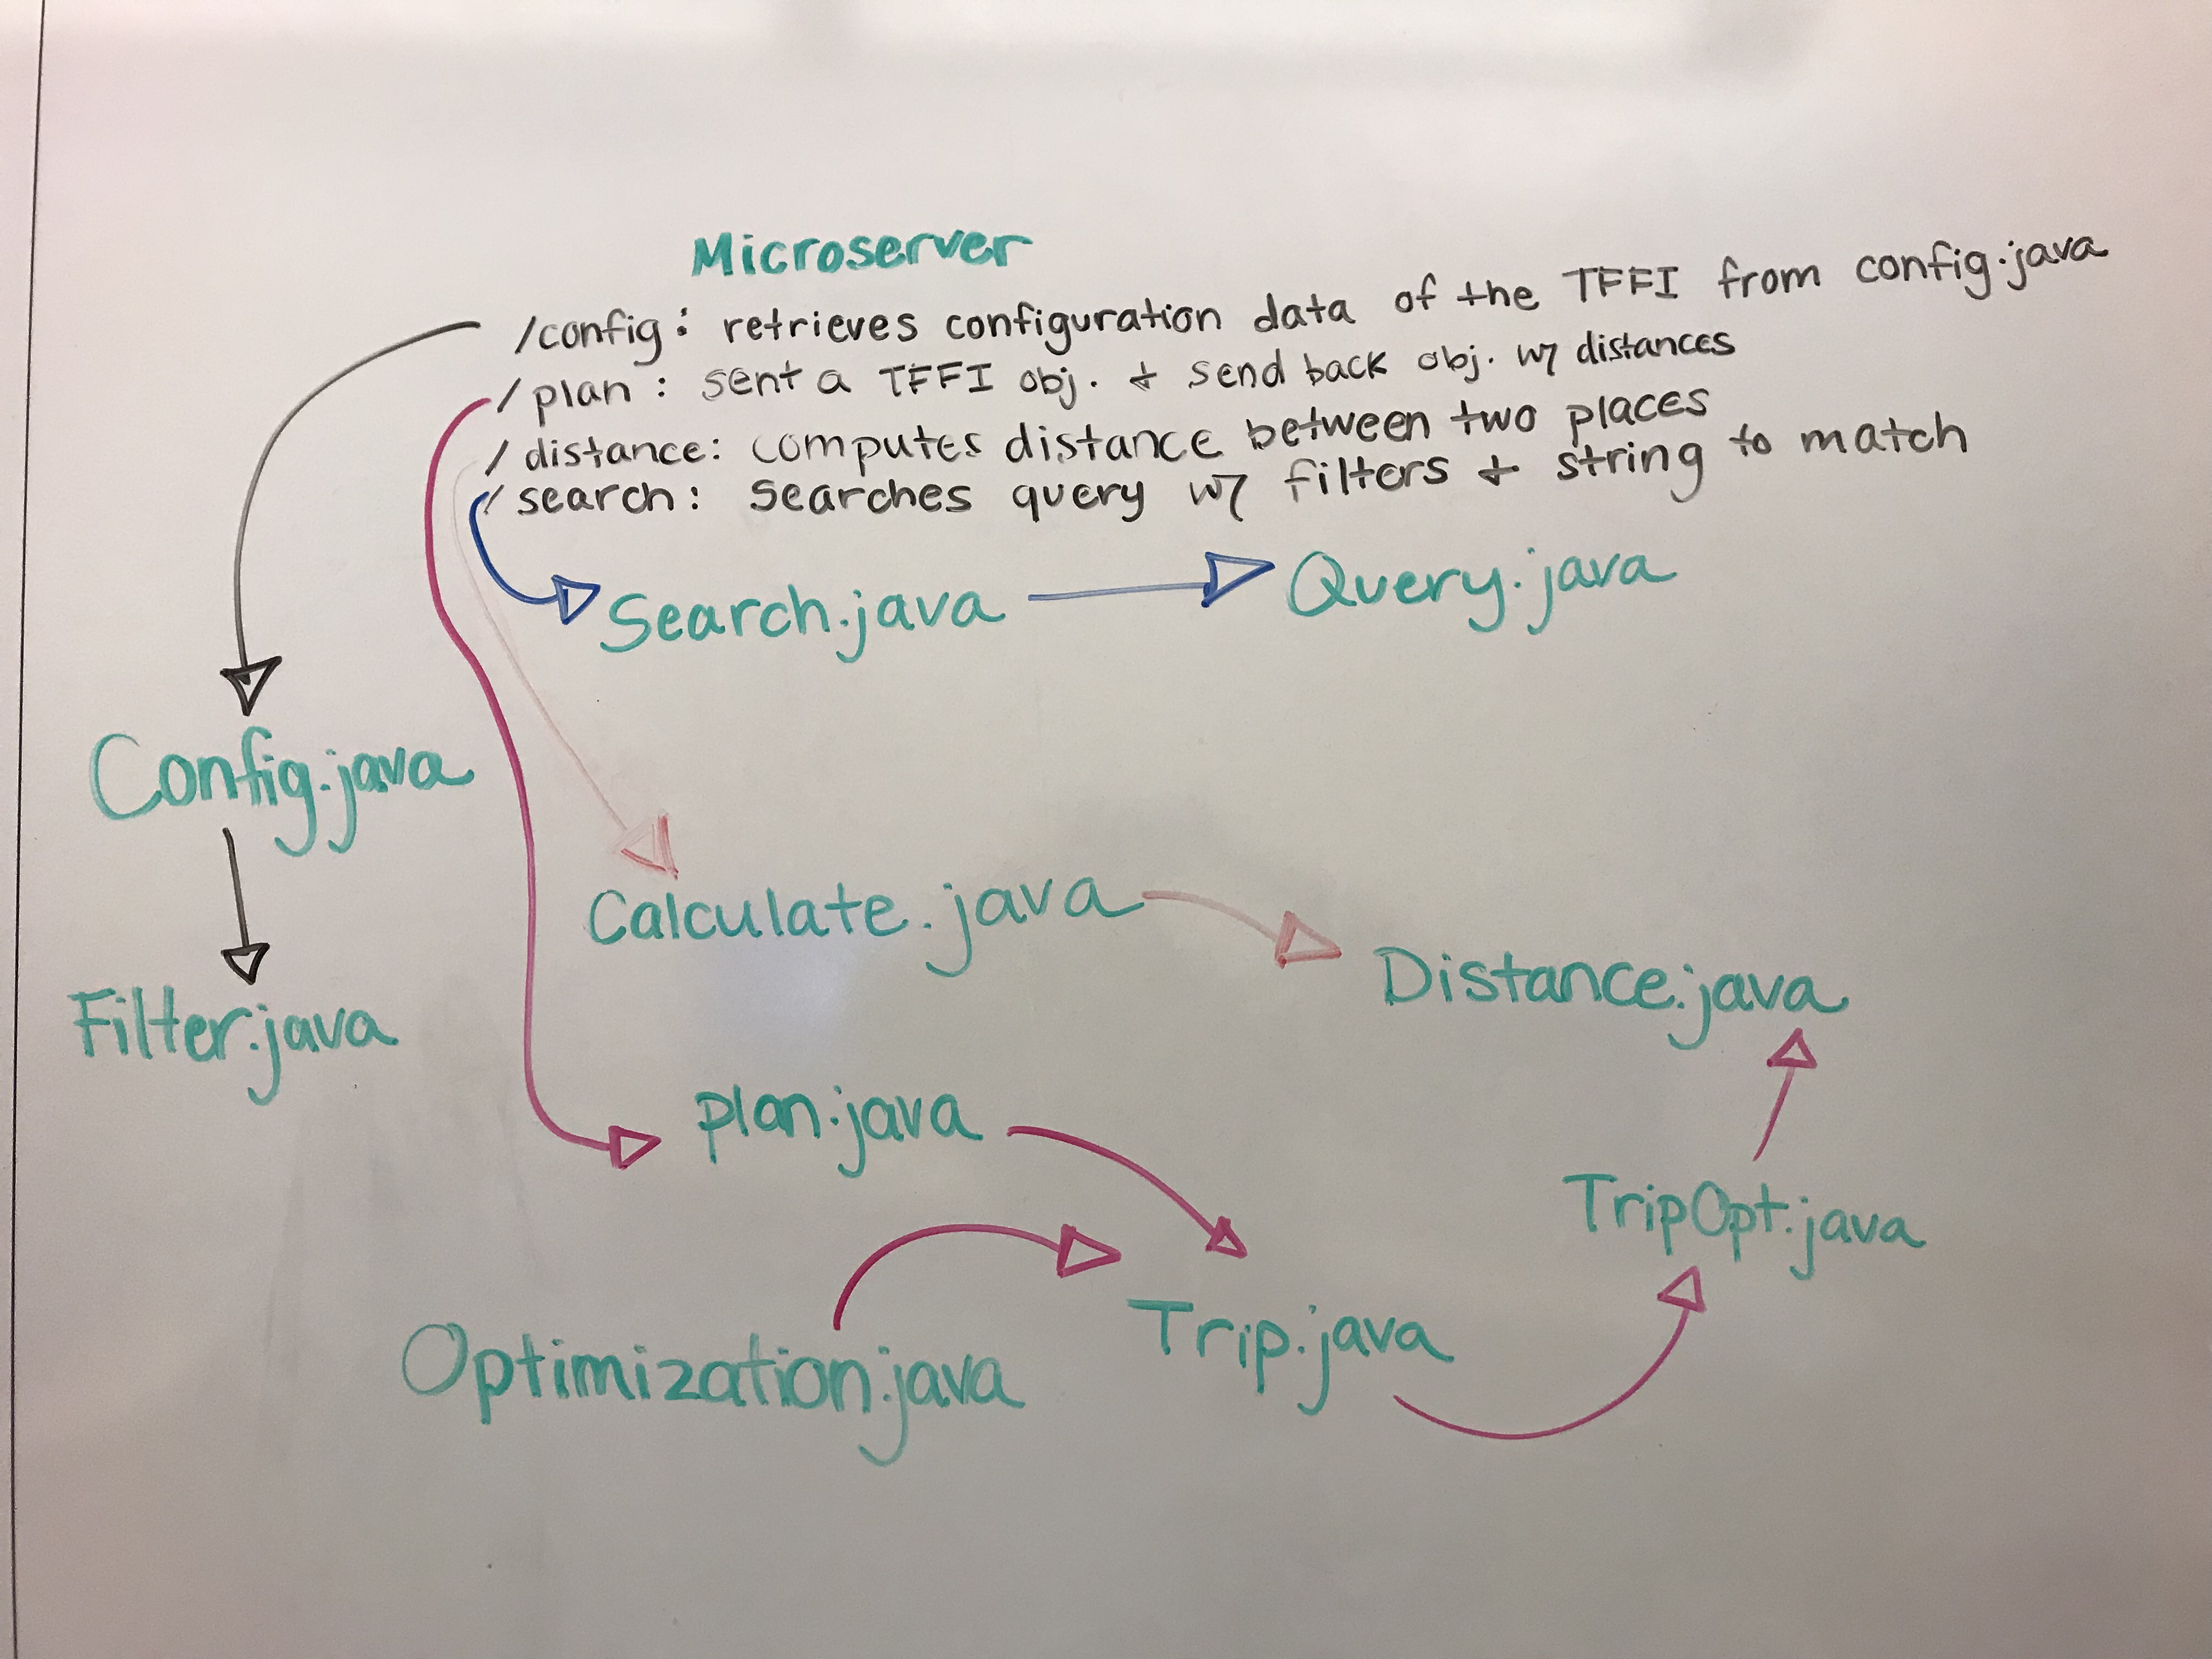 Microserver
/config: retrieves configuration data of the TFFI from config.java
/plan: sent a TFFI obj. + send back obj. w/ distances
/distance: computes distance between two places
/search: searches query w/ filters + string to match
Search.java
Query.java
Config.java
Calculate.java
Distance.java
Filter.java
plan.java
TripOpt.java
Trip.java
Optimization.java